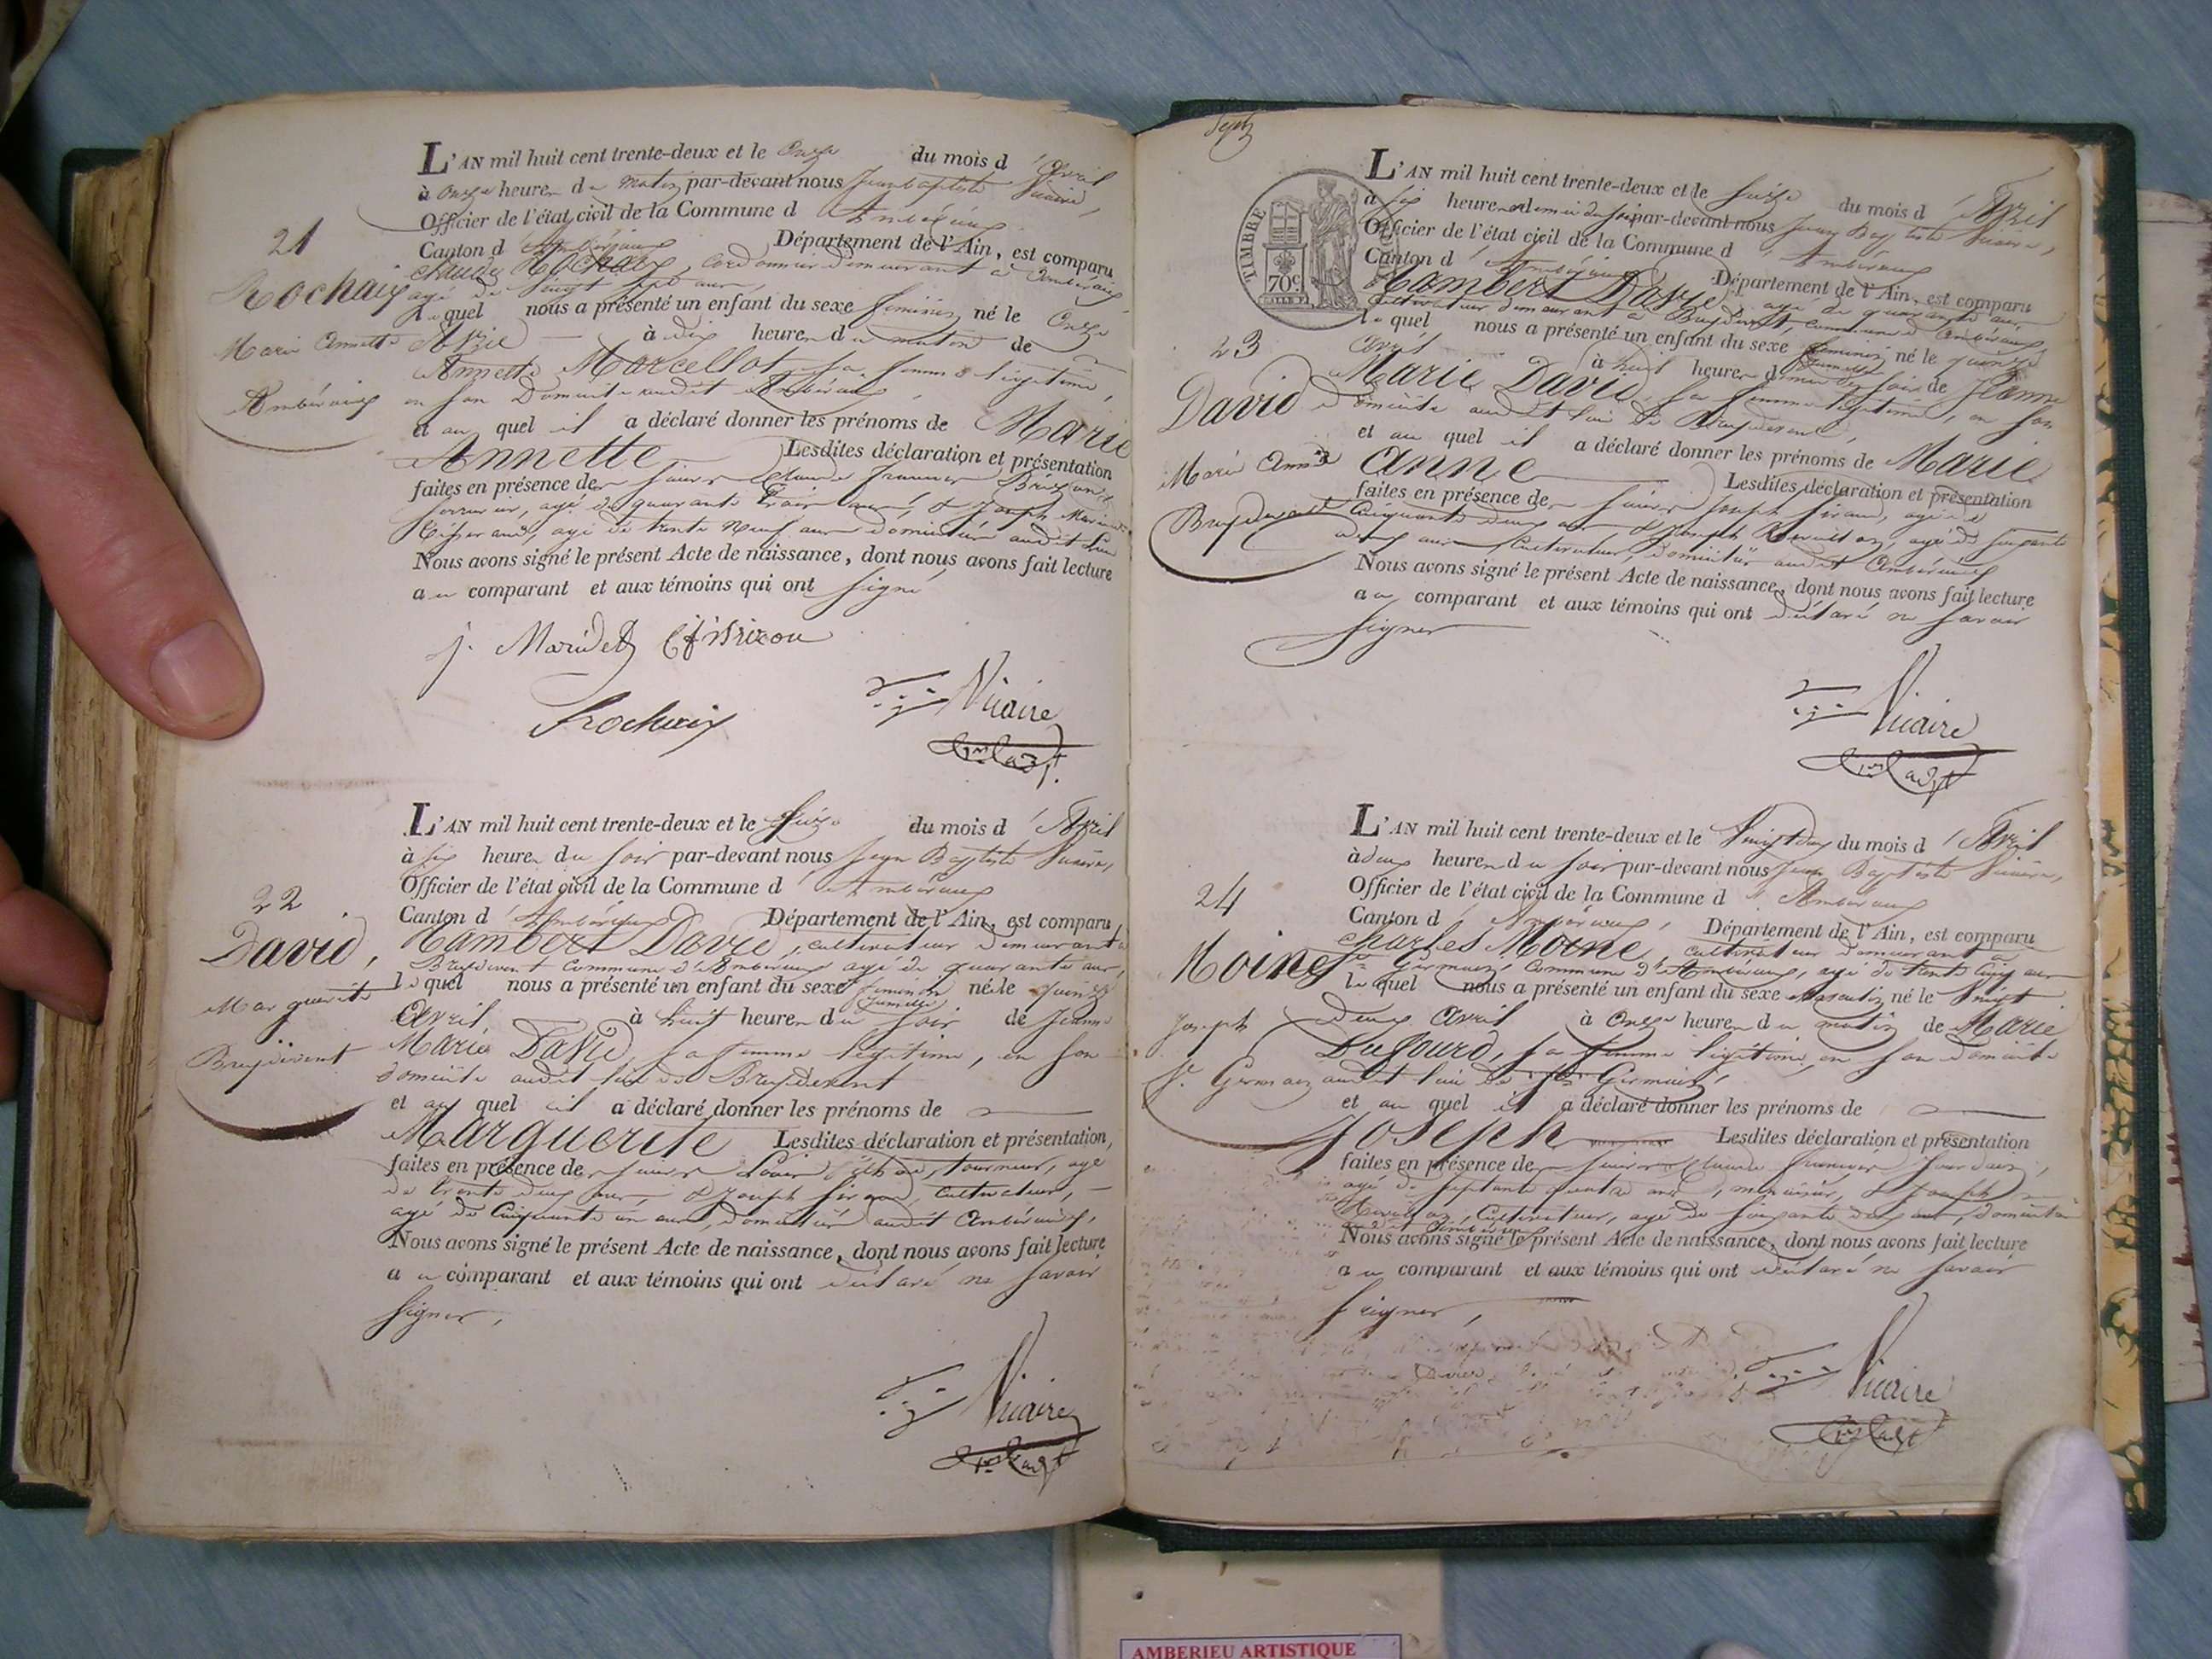 L'AN mil huit cent trente-deux et le onze du mois d'avril
à onze heures du matin par-devant nous Jean baptiste Vicaire,
Officier de l'état civil de la Commune d'Ambérieux
Canton d'Ambérieux Département de l'Ain, est comparu
Claude Rochaix, cordonnier demeurant à Ambérieux
agé de vingt sept ans,
lequel nous a présenté un enfant du sexe féminin né le onze
Avril à dix heures du matin de
Annette Marcellot sa femme légitime,
en son Domicile audit Ambérieux,
et auquel il a déclaré donner les prénoms de Marie
Annette Lesdites déclaration et présentation
faites en présence des sieurs Claude françois
serrurier, agé de quarante trois ans, & Joseph
agé de trente neuf ans domiciliés audit lieu
Nous avons signé le présent Acte de naissance, dont nous avons fait lecture
au comparant et aux témoins qui ont signé
21
Rochaix
Marie Annette
Ambérieux
j. Maridet
Rochaix
Vicaire
L'AN mil huit cent trente-deux et le seize du mois d'Avril
à six heures du soir par-devant nous Jean Baptiste Vicaire,
Officier de l'état civil de la Commune d'Ambérieux
Canton d'Ambérieux Département de l'Ain, est comparu
Lambert David, cultivateur demeurant à
Breydevent commune d'Ambérieux agé de quarante ans,
lequel nous a présenté un enfant du sexe féminin jumelle né le quinze
Avril, à huit heures du soir de Jeanne
Marie David, sa femme légitime, en son
domicile audit lieu de Breydevent
et auquel il a déclaré donner les prénoms de
Marguerite Lesdites déclaration et présentation,
faites en présence des sieurs Louis tourneur, agé
de trente deux ans & Joseph Siraud, cultivateur,
agé de Cinquante un ans, domiciliés audit Ambérieux,
Nous avons signé le présent Acte de naissance, dont nous avons fait lecture
au comparant et aux témoins qui ont déclaré ne savoir
signer,
22
David,
Marguerite
Breydevent
Vicaire
Sept
TIMBRE
70c.
L'AN mil huit cent trente-deux et le seize du mois d'Avril
à six heures et demie du soir par-devant nous Jean Baptiste Vicaire,
Officier de l'état civil de la Commune d'Ambérieux
Canton d'Ambérieux Département de l'Ain, est comparu
Lambert David, agé de quarante ans,
cultivateur demeurant à Breydevent, commune d'Ambérieux,
lequel nous a présenté un enfant du sexe féminin jumelle né le quinze
avril à huit heures demie du soir de Jeanne
Marie David, sa femme légitime, en son
domicile audit lieu de Breydevent,
et auquel il a déclaré donner les prénoms de Marie
anne Lesdites déclaration et présentation
faites en présence des sieurs Joseph Siraud, agé de
Cinquante deux ans & Joseph agé de soixante
deux ans Cultivateurs, domiciliés audit Ambérieux
Nous avons signé le présent Acte de naissance, dont nous avons fait lecture
au comparant et aux témoins qui ont déclaré ne savoir
signer
23
David
Marie Anne
Breydevent
Vicaire
L'AN mil huit cent trente-deux et le vingt deux du mois d'Avril
à deux heures du soir par-devant nous Jean Baptiste Vicaire,
Officier de l'état civil de la Commune d'Ambérieux
Canton d'Ambérieux, Département de l'Ain, est comparu
Charles Moine, cultivateur demeurant à
St Germain, Commune d'Ambérieux, agé de trente cinq ans
lequel nous a présenté un enfant du sexe masculin né le vingt
deux avril à onze heures du matin de Marie
Dufourd, sa femme légitime en son domicile
audit lieu de St Germain,
et auquel il a déclaré donner les prénoms de
Joseph Lesdites déclaration et présentation
faites en présence des sieurs Claude françois Jourdain,
agé de septante quatre ans, menuisier, & Joseph
Cultivateur, agé de soixante deux ans, domiciliés
audit Ambérieux
Nous avons signé le présent Acte de naissance, dont nous avons fait lecture
au comparant et aux témoins qui ont déclaré ne savoir
signer,
24
Moine
Joseph
St Germain
Vicaire
AMBERIEU ARTISTIQUE